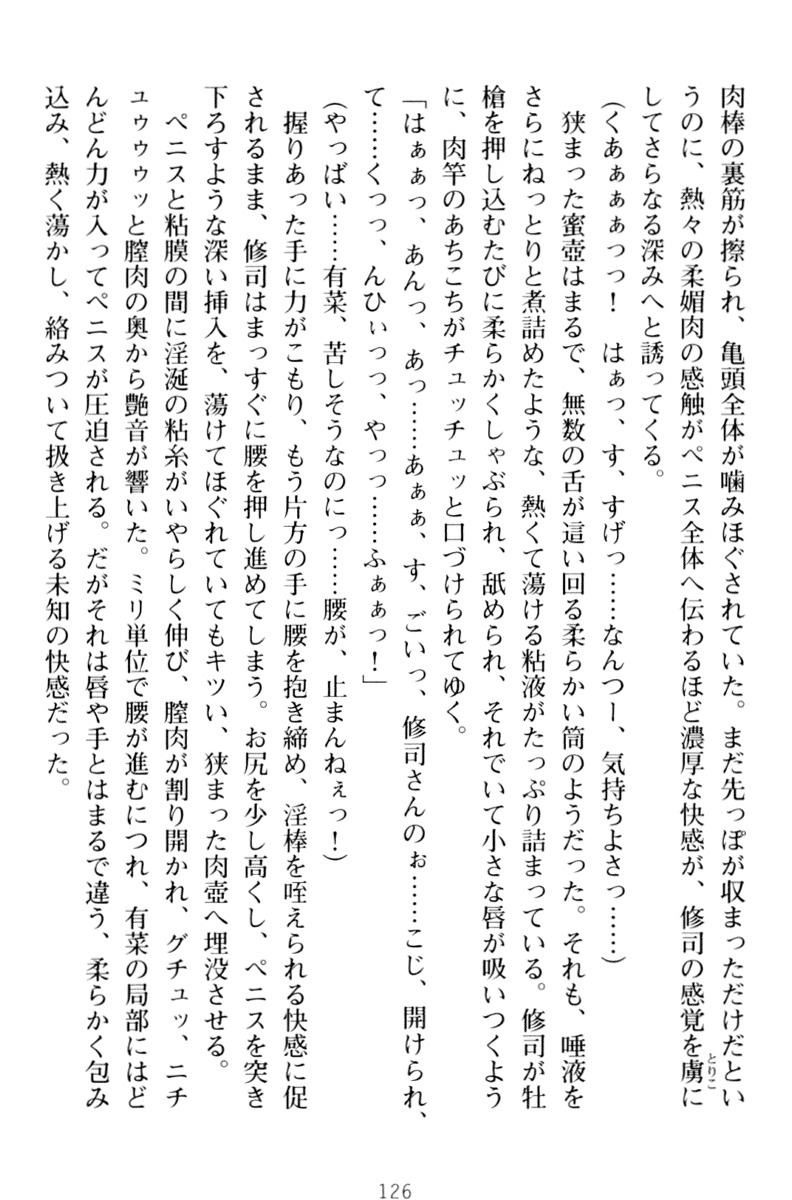 肉棒の裏筋が擦られ、亀頭全体が噛みほぐされていた。まだ先っぽが収まっただけだとい
うのに、熱々の柔媚肉の感触がペニス全体へ伝わるほど濃厚な快感が、修司の感覚を虜に
とりこ
してさらなる深みへと誘ってくる。
(くあぁぁぁっっ!　はぁっ、す、すげっ……なんつー、気持ちよさっ……)
狭まった蜜壺はまるで、無数の舌が這い回る柔らかい筒のようだった。それも、唾液を
さらにねっとりと煮詰めたような、熱くて蕩ける粘液がたっぷり詰まっている。修司が牡
槍を押し込むたびに柔らかくしゃぶられ、舐められ、それでいて小さな唇が吸いつくよう
に、肉竿のあちこちがチュッチュッと口づけられてゆく。
「はぁぁっ、あんっ、あっ……あぁぁ、す、ごいっ、修司さんのぉ……こじ、開けられ、
て……くっっ、んひぃっっ、やっっ……ふぁぁっ!」
(やっばい……有菜、苦しそうなのにっ……腰が、止まんねぇっ!)
握りあった手に力がこもり、もう片方の手に腰を抱き締め、淫棒を咥えられる快感に促
されるまま、修司はまっすぐに腰を押し進めてしまう。お尻を少し高くし、ペニスを突き
下ろすような深い挿入を、蕩けてほぐれていてもキツい、狭まった肉壺へ埋没させる。
ペニスと粘膜の間に淫涎の粘糸がいやらしく伸び、膣肉が割り開かれ、グチュッ、ニチ
ュゥゥゥッと膣肉の奥から艶音が響いた。ミリ単位で腰が進むにつれ、有菜の局部にはど
んどん力が入ってペニスが圧迫される。だがそれは唇や手とはまるで違う、柔らかく包み
込み、熱く蕩かし、絡みついて扱き上げる未知の快感だった。
126